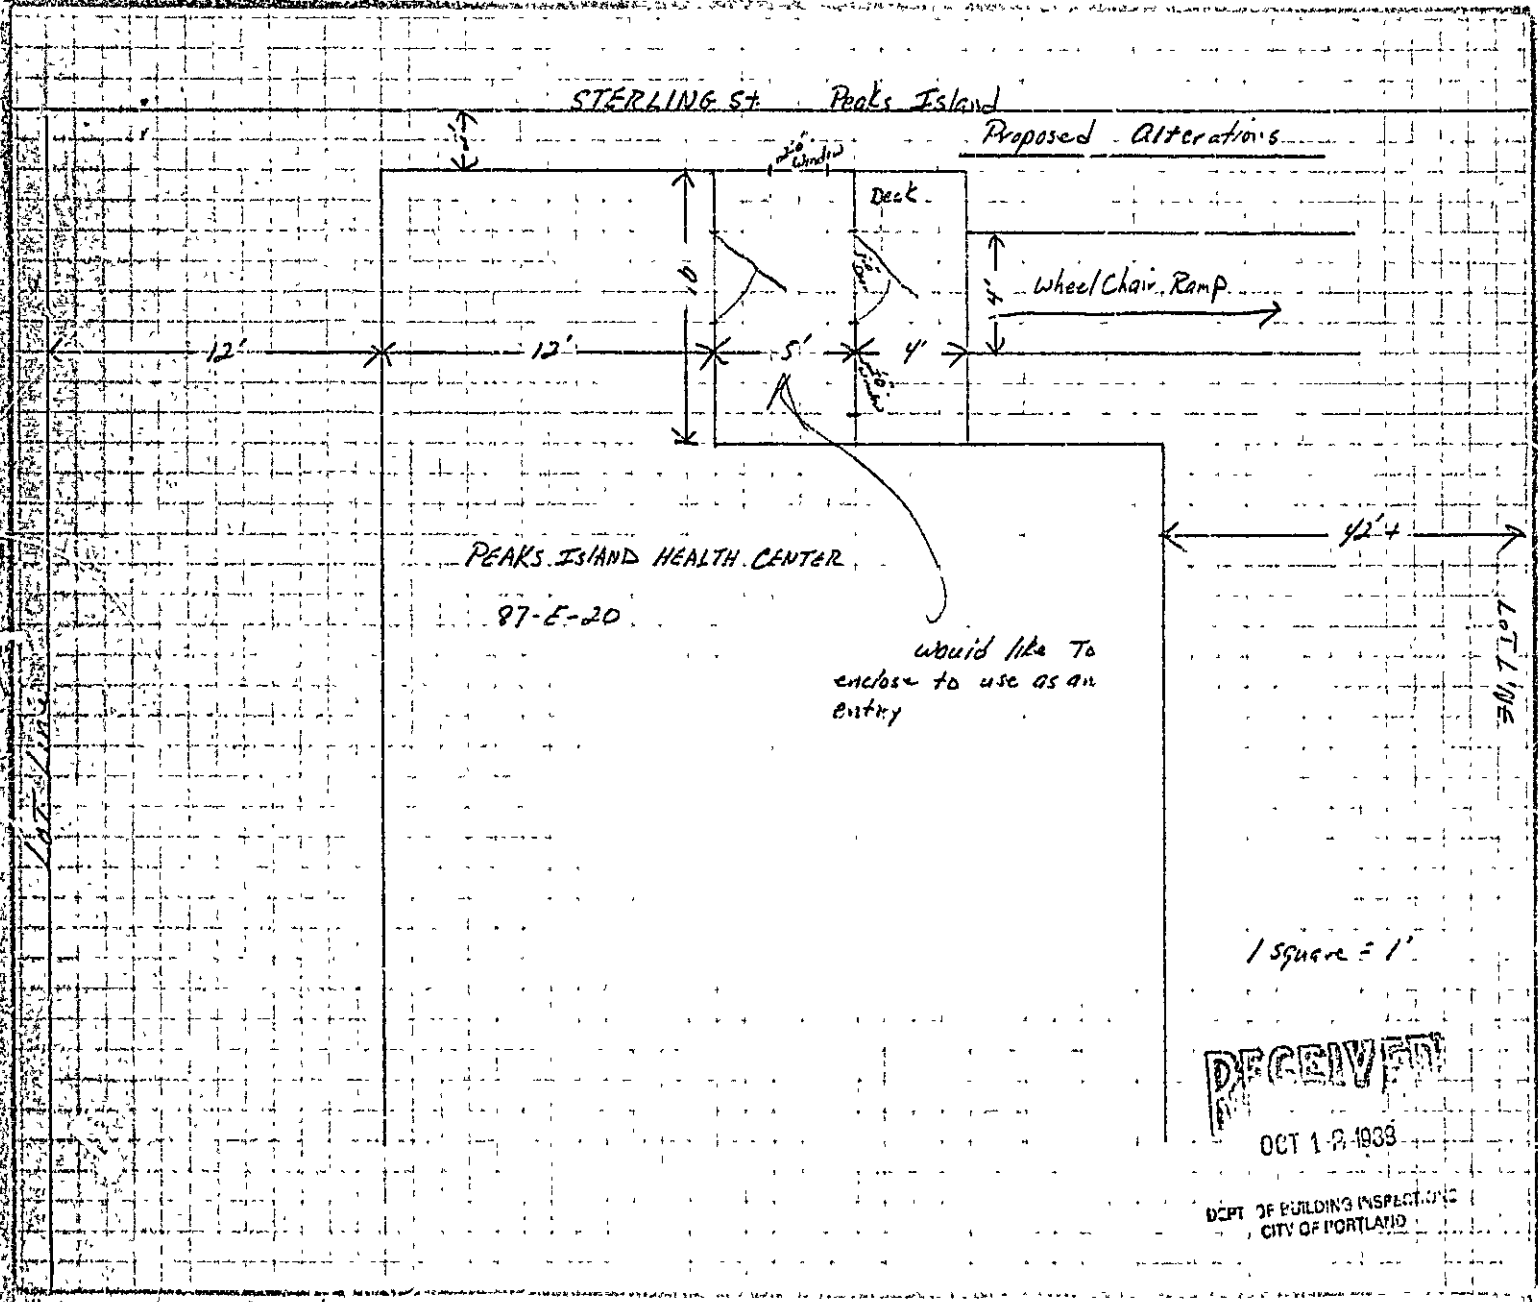 STERLING St. Peaks Island
Proposed Alterations
2'
2'0"
Window
Deck
10'
3'0"
Door
4'
Wheel Chair Ramp
12'
12'
5'
4'
2'0"
Window
42'+
PEAKS ISLAND HEALTH CENTER
87-E-20
would like To
enclose to use as an
entry
LOT LINE
Lot Line
1 square = 1'
RECEIVED
OCT 1
DEPT OF BUILDING INSPECTIONS
CITY OF PORTLAND